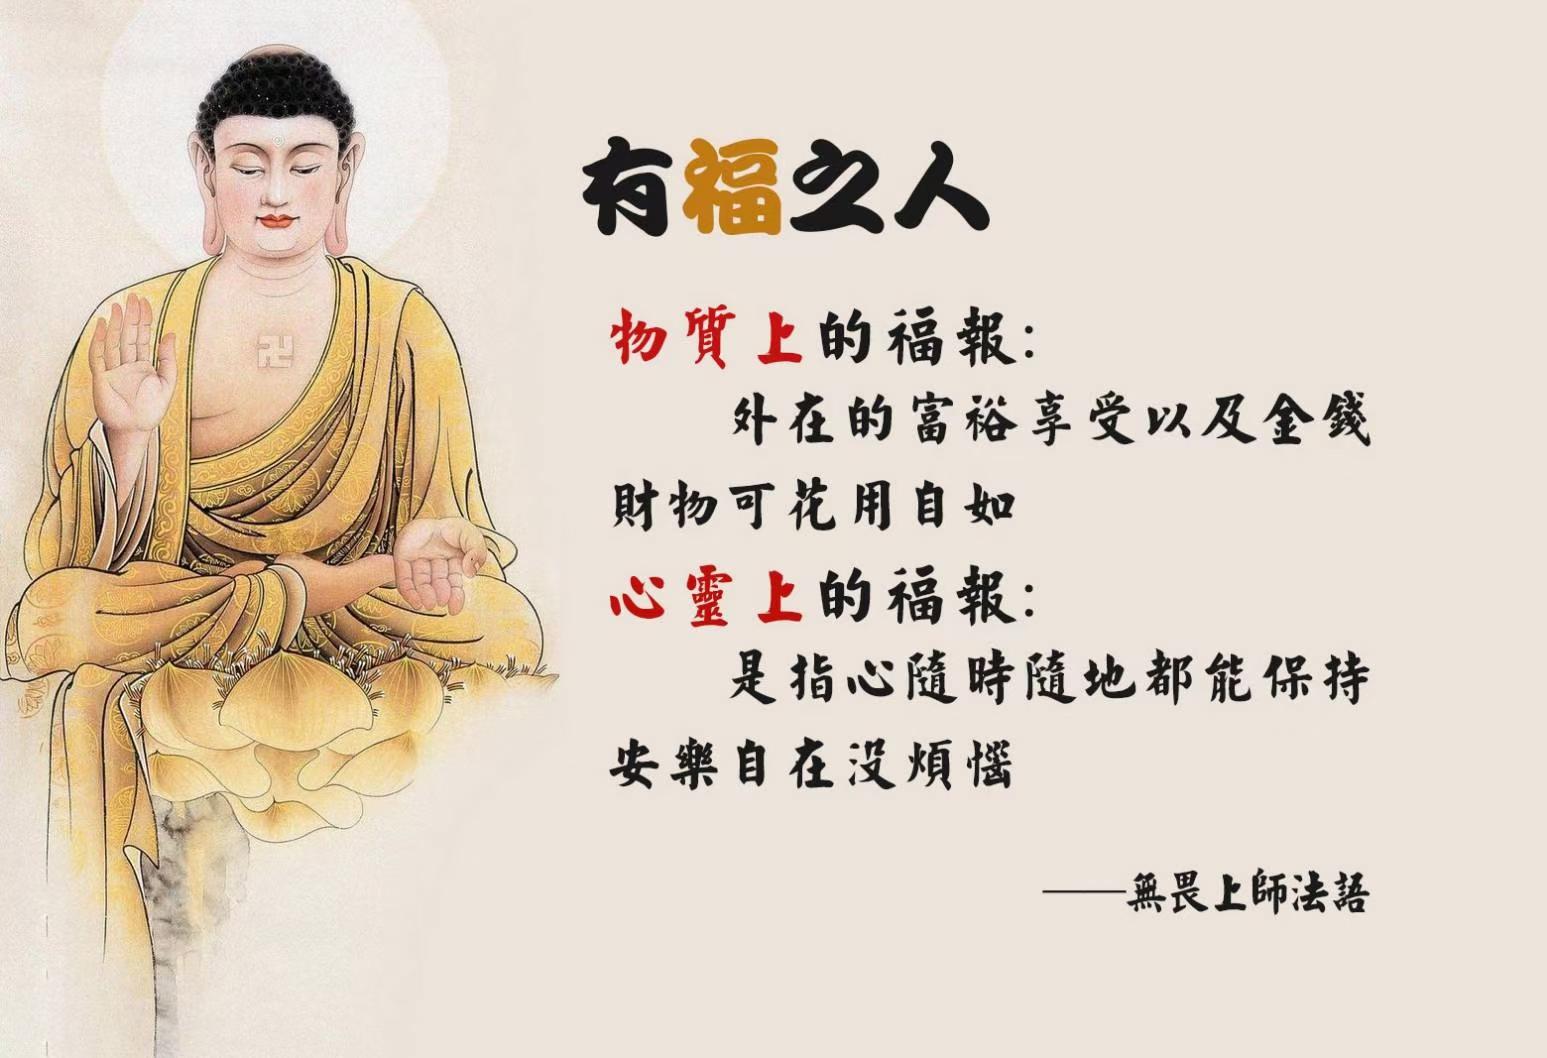 有福之人
物質上的福報:
外在的富裕享受以及金錢
財物可花用自如
心靈上的福報:
是指心隨時隨地都能保持
安樂自在没煩惱
——無畏上師法語